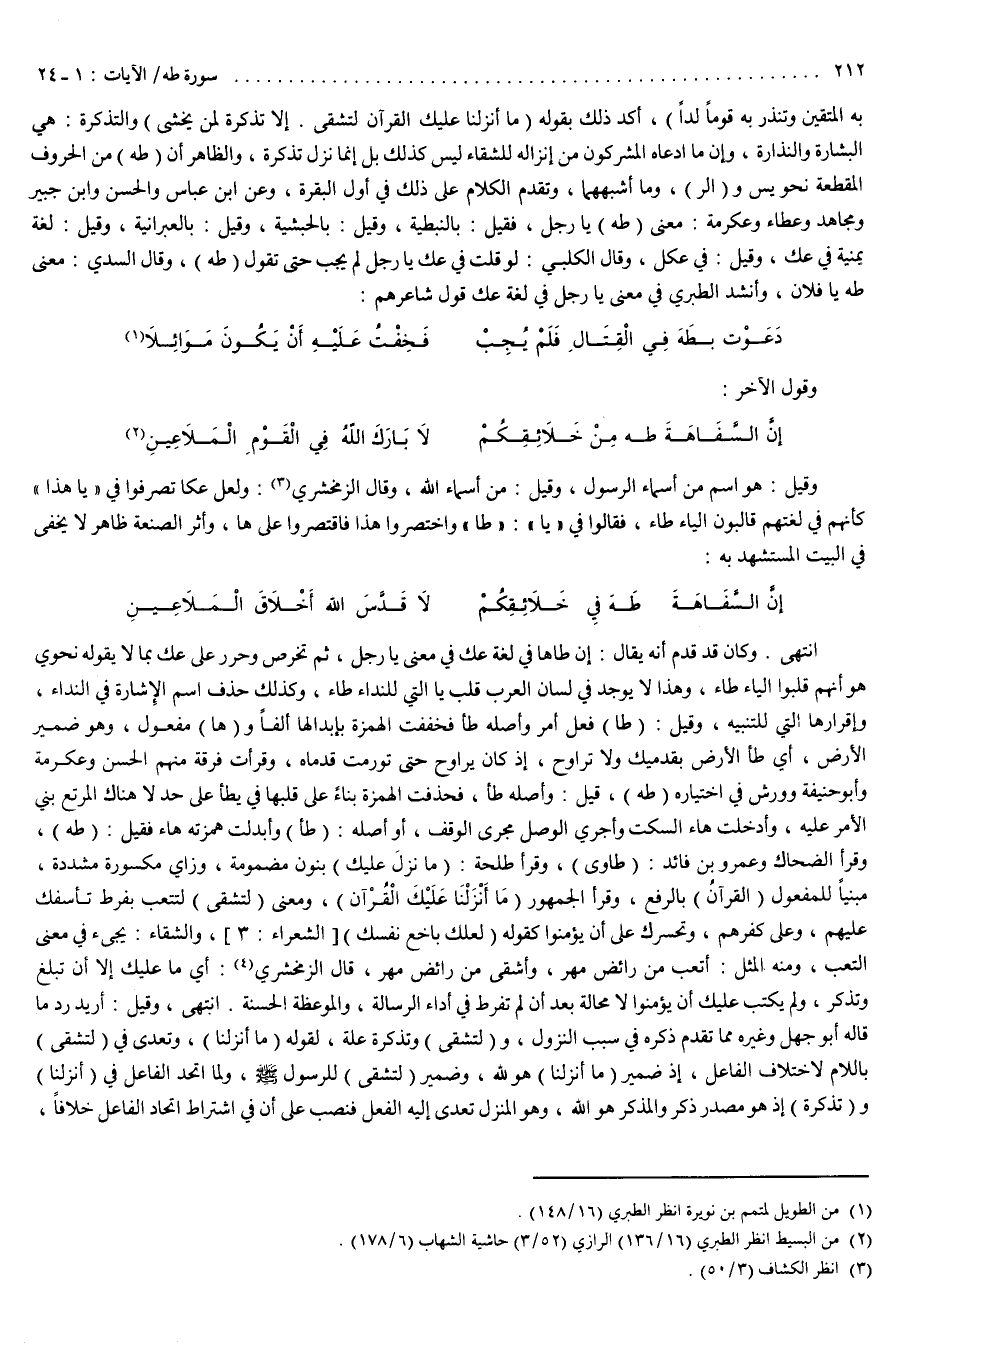 ٢١٢ ........................................................ سورة طه/ الآيات : ١ - ٢٤
به المتقين وتنذر به قوماً لداً ) ، أكد ذلك بقوله ( ما أنزلنا عليك القرآن لتشقى . إلا تذكرة لمن يخشى ) والتذكرة : هي
البشارة والنذارة ، وإن ما ادعاه المشركون من إنزاله للشقاء ليس كذلك بل إنما نزل تذكرة ، والظاهر أن ( طه ) من الحروف
المقطعة نحو يس و ( الر ) ، وما أشبههما ، وتقدم الكلام على ذلك في أول البقرة ، وعن ابن عباس والحسن وابن جبير
ومجاهد وعطاء وعكرمة : معنى ( طه ) يا رجل ، فقيل : بالنبطية ، وقيل : بالحبشية ، وقيل : بالعبرانية ، وقيل : لغة
يمنية في عك ، وقيل : في عكل ، وقال الكلبي : لو قلت في عك يا رجل لم يجب حتى تقول ( طه ) ، وقال السدي : معنى
طه يا فلان ، وأنشد الطبري في معنى يا رجل في لغة عك قول شاعرهم :
دَعَـوْت بـطَهَ فِـي الْقِتَـالِ فَلَمْ يُجِبْ فَـخِفْـتُ عَـلَيْـهِ أَنْ يَـكُـونَ مَـوَائِـلَا(١)
وقول الآخر :
إِنَّ الـسَّفَـاهَـةَ طـه مِـنْ خَـلَائِـقِـكُـمْ لَا بَـارَكَ اللَّهُ فِي الْقَـوْمِ الْـمَـلَاعِـيـنِ(٢)
وقيل : هو اسم من أسماء الرسول ، وقيل : من أسماء الله ، وقال الزمخشري(٣) : ولعل عكا تصرفوا في « يا هذا »
كأنهم في لغتهم قالبون الياء طاء ، فقالوا في « يا » : « طا » واختصروا هذا فاقتصروا على ها ، وأثر الصنعة ظاهر لا يخفى
في البيت المستشهد به :
إِنَّ الـسَّفَـاهَـةَ طَـهَ فِي خَـلَائِقِكُمْ لَا قَـدَّسَ الله أَخْـلَاقَ الْـمَـلَاعِـيـنِ
انتهى . وكان قد قدم أنه يقال : إن طاها في لغة عك في معنى يا رجل ، ثم تخرص وحرر على عك بما لا يقوله نحوي
هو أنهم قلبوا الياء طاء ، وهذا لا يوجد في لسان العرب قلب يا التي للنداء طاء ، وكذلك حذف اسم الإشارة في النداء ،
وإقرارها التي للتنبيه ، وقيل : ( طا ) فعل أمر وأصله طأ فخففت الهمزة بإبدالها ألفـاً و ( ها ) مفعـول ، وهو ضمـير
الأرض ، أي طأ الأرض بقدميك ولا تراوح ، إذ كان يراوح حتى تورمت قدماه ، وقرأت فرقة منهم الحسن وعكـرمة
وأبو حنيفة وورش في اختياره ( طه ) ، قيل : وأصله طأ ، فحذفت الهمزة بناءً على قلبها في يطأ على حد لا هناك المرتع بني
الأمر عليه ، وأدخلت هاء السكت وأجري الوصل مجرى الوقف ، أو أصله : ( طأ ) وأبدلت همزته هاء فقيل : ( طه ) ،
وقرأ الضحاك وعمرو بن فائد : ( طاوى ) ، وقرأ طلحة : ( ما نزل عليك ) بنون مضمومة ، وزاي مكسورة مشددة ،
مبنياً للمفعول ( القرآنُ ) بالرفع ، وقرأ الجمهور ( مَا أَنْزَلْنَا عَلَيْكَ الْقُرْآن ) ، ومعنى ( لتشقى ) لتتعب بفرط تـأسفك
عليهم ، وعلى كفرهم ، وتحسرك على أن يؤمنوا كقوله ( لعلك باخع نفسك ) [ الشعراء : ٣ ] ، والشقاء : يجيء في معنى
التعب ، ومنه المثل : أتعب من رائض مهر ، وأشقى من رائض مهر ، قال الزمخشري(٤) : أي ما عليك إلا أن تبلغ
وتذكر ، ولم يكتب عليك أن يؤمنوا لا محالة بعد أن لم تفرط في أداء الرسالة ، والموعظة الحسنة . انتهى ، وقيل : أريد رد ما
قاله أبو جهل وغيره مما تقدم ذكره في سبب النزول ، و ( لتشقى ) وتذكرة علة ، لقوله ( ما أنزلنا ) ، وتعدى في ( لتشقى )
باللام لاختلاف الفاعل ، إذ ضمير ( ما أنزلنا ) هو لله ، وضمير ( لتشقى ) للرسول ﷺ ، ولما اتحد الفاعل في ( أنزلنا )
و ( تذكرة ) إذ هو مصدر ذكر والمذكر هو الله ، وهو المنزل تعدى إليه الفعل فنصب على أن في اشتراط اتحاد الفاعل خلافاً ،
(١) من الطويل لمتمم بن نويرة انظر الطبري (١٤٨/١٦) .
(٢) من البسيط انظر الطبري (١٣٦/١٦) الرازي (٣/٥٢) حاشية الشهاب (١٧٨/٦) .
(٣) انظر الكشاف (٥٠/٣) .